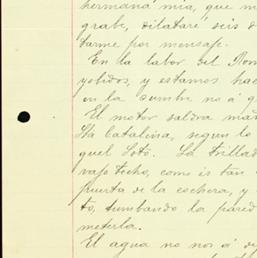 hermana mia, que m
grabe, dilataré seis d
tarme por mensaje.
En la labor del Rom
yotidos, y estamos hac
en la cumbre no á q
El motor saldra mañ
Sta Catalina, segun lo
quel Soto. La trillad
vajo techo, como is tan
puerta de la cochera, y
to, tumbando la pared
meterla.
El agua no nos á de